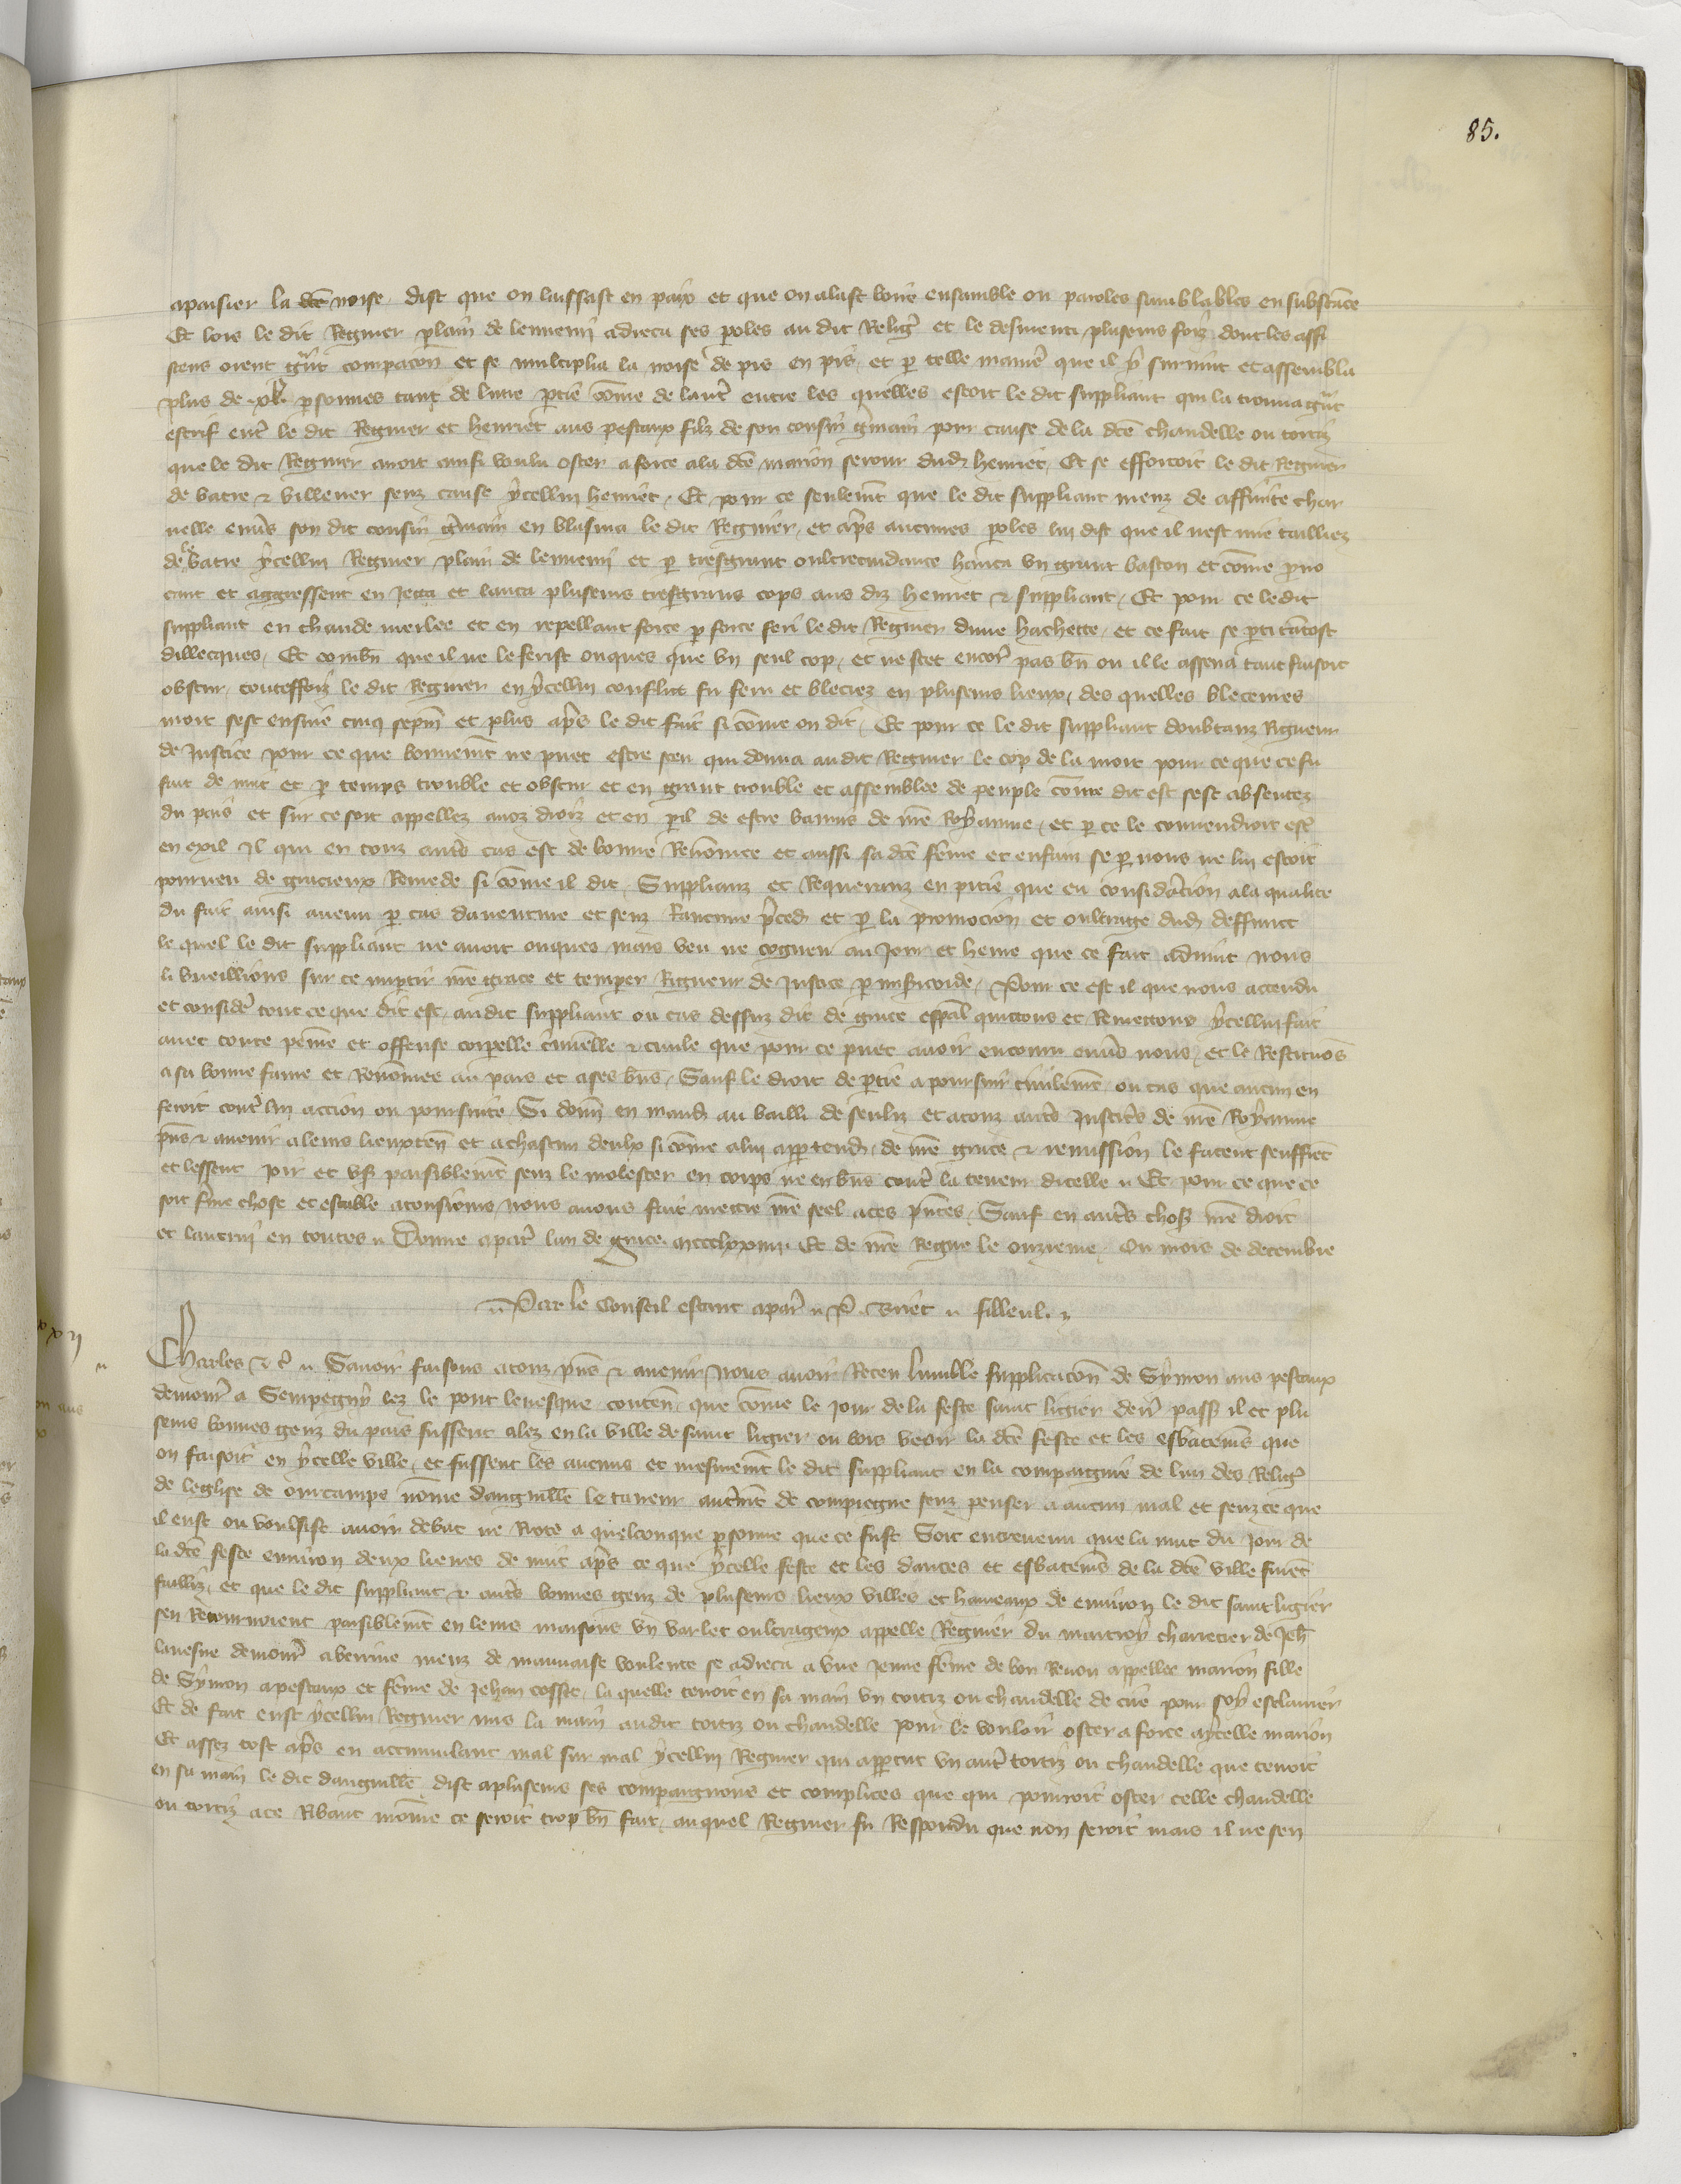 85.
apaisier la dcē noise dist que on laissast en paix et que on alast boire ensamble ou paroles samblables en substāce
Et lors le dit Regnier plain de lennemi adreca ses p̄oles au dit Religꝰ et le desmenti pluseurs foiz dont les assi
stens orent gñt compacoñ et se multiplia la noise de pis en pis et p̄ telle manie᷑ que il y̑ survint et assembla
plus de xl p̄sonnes tant de lune p̄tie cōme de laut᷑ entre les quelles estoit le dit suppliant qui la trouva gñt
estrif ent᷑ le dit Regnier et henriet aus pestaux filz de son cousin g̃main pour cause de la dcē chandelle ou tortiz
que le dit Regnier avoit ainsi voulu oster a force a la dcē marion serour dud̄ henriet. Et se efforcoit le dit Regnier
de batre & villener senz cause ycellui henriet. Et pour ce seulemt̄ que le dit suppliant menz de affinite char
nelle env̄s son dit cousin g̃main en blasma le dit Regnier, et ap̄s aucunes p̄oles lui dist que il nest mie tailliez
de le batre ycellui Regnier plain de lennemi et p̄ tresgrant oultrecuidance haulca un grant baston et cōme p̄vo
cant et aggressent en Jecta et lanca pluseurs tresgrans cops aus diz henriet & suppliant. Et pour ce le dit
suppliant en chaude merlee et en repellant force p̄ force feri le dit Regnier dune hachette, et ce fait se p̄ti tātost
dillecques. Et combn̄ que il ne le ferist onques que un seul cop, et ne scet encor᷑ pas bn̄ ou il le assena tant faisoit
obscur, touteffoiz le dit Regnier en ycellui conflict fu feru et bleciez en pluseurs lieux, des quelles bleceures
mort sest ensuie cinq sepm̄ et plus ap̄s le dit fait si cōme on dit, Et pour ce le dit suppliant doubtanz Rigueur
de Justice pour ce que bonnemt̄ ne puet estre sceu qui donna au dit Regnier le cop de la mort pour ce que ce fu
fait de nuit et p̄ temps trouble et obscur et en grant trouble et assemblee de peuple cōme dit est sest absentez
du pais et sur ce soit appellez a noz droiz et en p̄il de estre bannis de nr̄e Royaume, et p̄ ce le convendroit est᷑
en exil Il qui en touz aut̄s cas est de bonne Renōmee et aussi sa dcē fēme et enfans se p̄ nous ne lui estoit
pourveu de gracieux Remede si cōme il dit, Supplianz et Requeranz en pitie que eu consid̄acion a la qualite
du fait ainsi avenu p̄ cas daventure et senz Rancune p̄ced̄ et p̄ la promocion et oultrage dud̄ deffunct
le quel le dit suppliant ne avoit onques mais veu ne cogneu au Jour et heure que ce fait advint nous
li vueillions sur ce imp̄tir nr̄e grace et temper Rigueur de Justice p̄ miscorde, Pour ce est il que nous attendu
et consider᷑ tout ce que dit est, au dit suppliant ou cas dessuz dit de grace esp̄al quittons et Remettons ycellui fait
avec toute peine et offense corpelle criminelle & civile que pour ce puet avoir encouru env̄s nous, et le Restituōs
a sa bonne fame et Renōmee au pais et a ses bn̄s, Sauf le droit de p̄tie a poursuir civilemt̄ ou cas que aucun en
feroit cont᷑ lui action ou poursuite. Si donn̄ en mand̄ au bailli de Senliz et a touz aut̄s Justic̄s de nr̄e Royaume
p̄ns & avenir a leurs lieuxten̄ et a chascun deulx si cōme a lui app̄tend̄, de nr̄e grace & remission le facent seuffrēt
et lessent joir et us᷑ paisiblemt̄ senz le molester en corps ne en bn̄s cont᷑ la teneur dicelle Et pour ce que ce
soit f̄me chose et estable a tousiours, nous avons fait mettre nr̄e seel a ces p̄ntes, Sauf en aut̄s chos᷑ nr̄e droit
et lautrui en toutes Donne a par᷑ lan de grace mccclxxiiii Et de nr̄e Regne le onzieme, Ou mois de decembre
Par le Conseil estant a par᷑ filleul.
Charles &c᷑ Savoir faisons a touz p̄ns & avenir Nous avoir Receu lumble supplicacoñ de Symon aus pestaux
demour᷑ a Sempegny lez le pont levesque conten̄, que cōme le jour de la feste saint ligier derr᷑ pass᷑ il et plu
seurs bonnes genz du pais fussent alez en la ville de saint ligier ou bois veoir la dcē feste et les esbatemēs que
on faisoit en ycelle ville, et fussent les aucuns et mesmemt̄ le dit suppliant en la compaignie de lun des Religꝰ
de leglise de ourcamps nōme danguillē le taneur autrem̄t de compiegne senz penser a aucun mal et senz ce que
il eust ou voulsist avoir debat ne Riote a quelconque p̄sonne que ce fust Soit entrevenu que la nuit du jour de
la dcē feste environ deux lieues de nuit ap̄s ce que ycelle feste et les dances et esbatemēs de la dcē ville furēt
failliz, et que le dit suppliant & aut̄s bonnes genz de pluseurs lieux villes et hameaux de environ le dit saint ligier
sen Retournoient paisiblemt̄ en leurs maisons un varlet oultrageux appelle Regnier du martroy charretier de Jeh̄
lavesne demour᷑ a berrine menz de mauvaise voulente se adreca a une jeune fēme de bon Renon appellee marion fille
de Symon apestaux et fēme de Jehan cossete, la quelle tenoit en sa main un tortiz ou chandelle de cire pour soy esclairier
Et de fait eust ycellui Regnier mis la main au dit tortiz ou chandelle pour le vouloir oster a force a ycelle marion
Et assez tost ap̄s en accumulant mal sur mal ycellui Regnier qui app̄cut un aut᷑ tortiz ou chandelle que tenoit
en sa main le dit danguillē dist a pluseurs ses compaignons et complices que qui pourroit oster celle chandelle
ou tortiz a ce Ribaut moinne ce seroit trop bn̄ fait, auquel Regnier fu Respondu que non seroit mais il ne sen